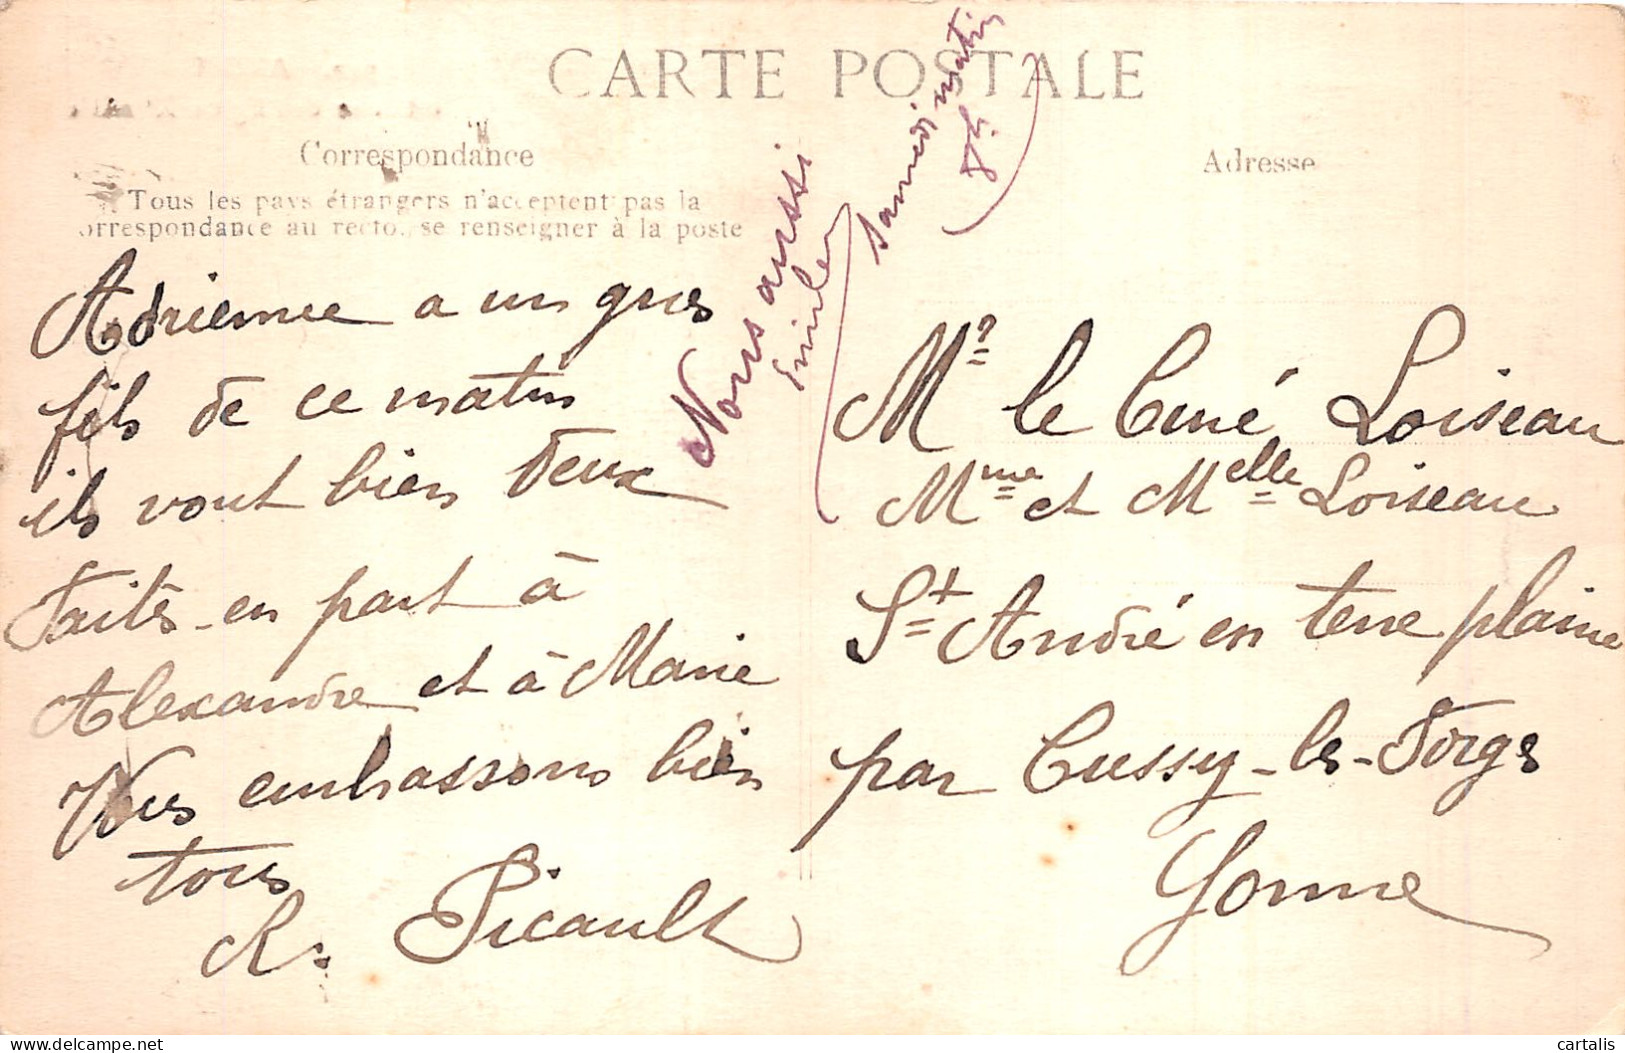 CARTE POSTALE
Correspondance
Tous les pays étrangers n'acceptent pas la
correspondance au recto, se renseigner à la poste
Adresse
Adrienne a un gros
fils de ce matin
ils vont bien deux
Faites-en part à
Alexandre et à Marie
Vous embrassons bien
tous
R. Picault
Nous aussi
Emile
samedi matin
8h.
Mr le Curé Loiseau
Mme et Melle Loiseau
St André en terre plaine
par Cussy-les-Forges
Yonne
cartalis